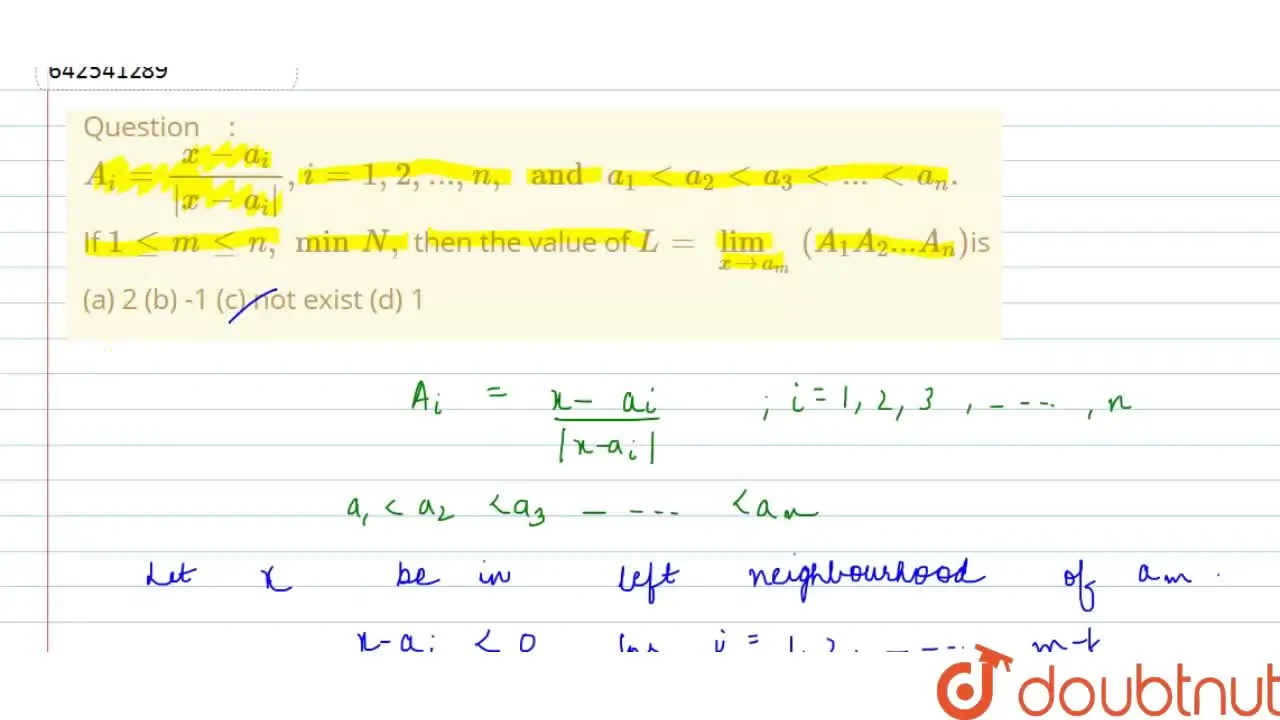 642541289
Question :
A_i = \frac{x - a_i}{|x - a_i|}, i = 1, 2, ..., n, and a_1 < a_2 < a_3 < ... < a_n.
If 1 ≤ m ≤ n, min N, then the value of L = \lim_{x→a_m} (A_1A_2...A_n)is
(a) 2 (b) -1 (c) not exist (d) 1
A_i = \frac{x - a_i}{|x - a_i|} ; i = 1, 2, 3, - ---- , n
a_1 < a_2 < a_3 - ---- < a_n
Let x be in left neighbourhood of a_m .
x - a_i < 0 for i = 1, 2, - ---- m-1
doubtnut